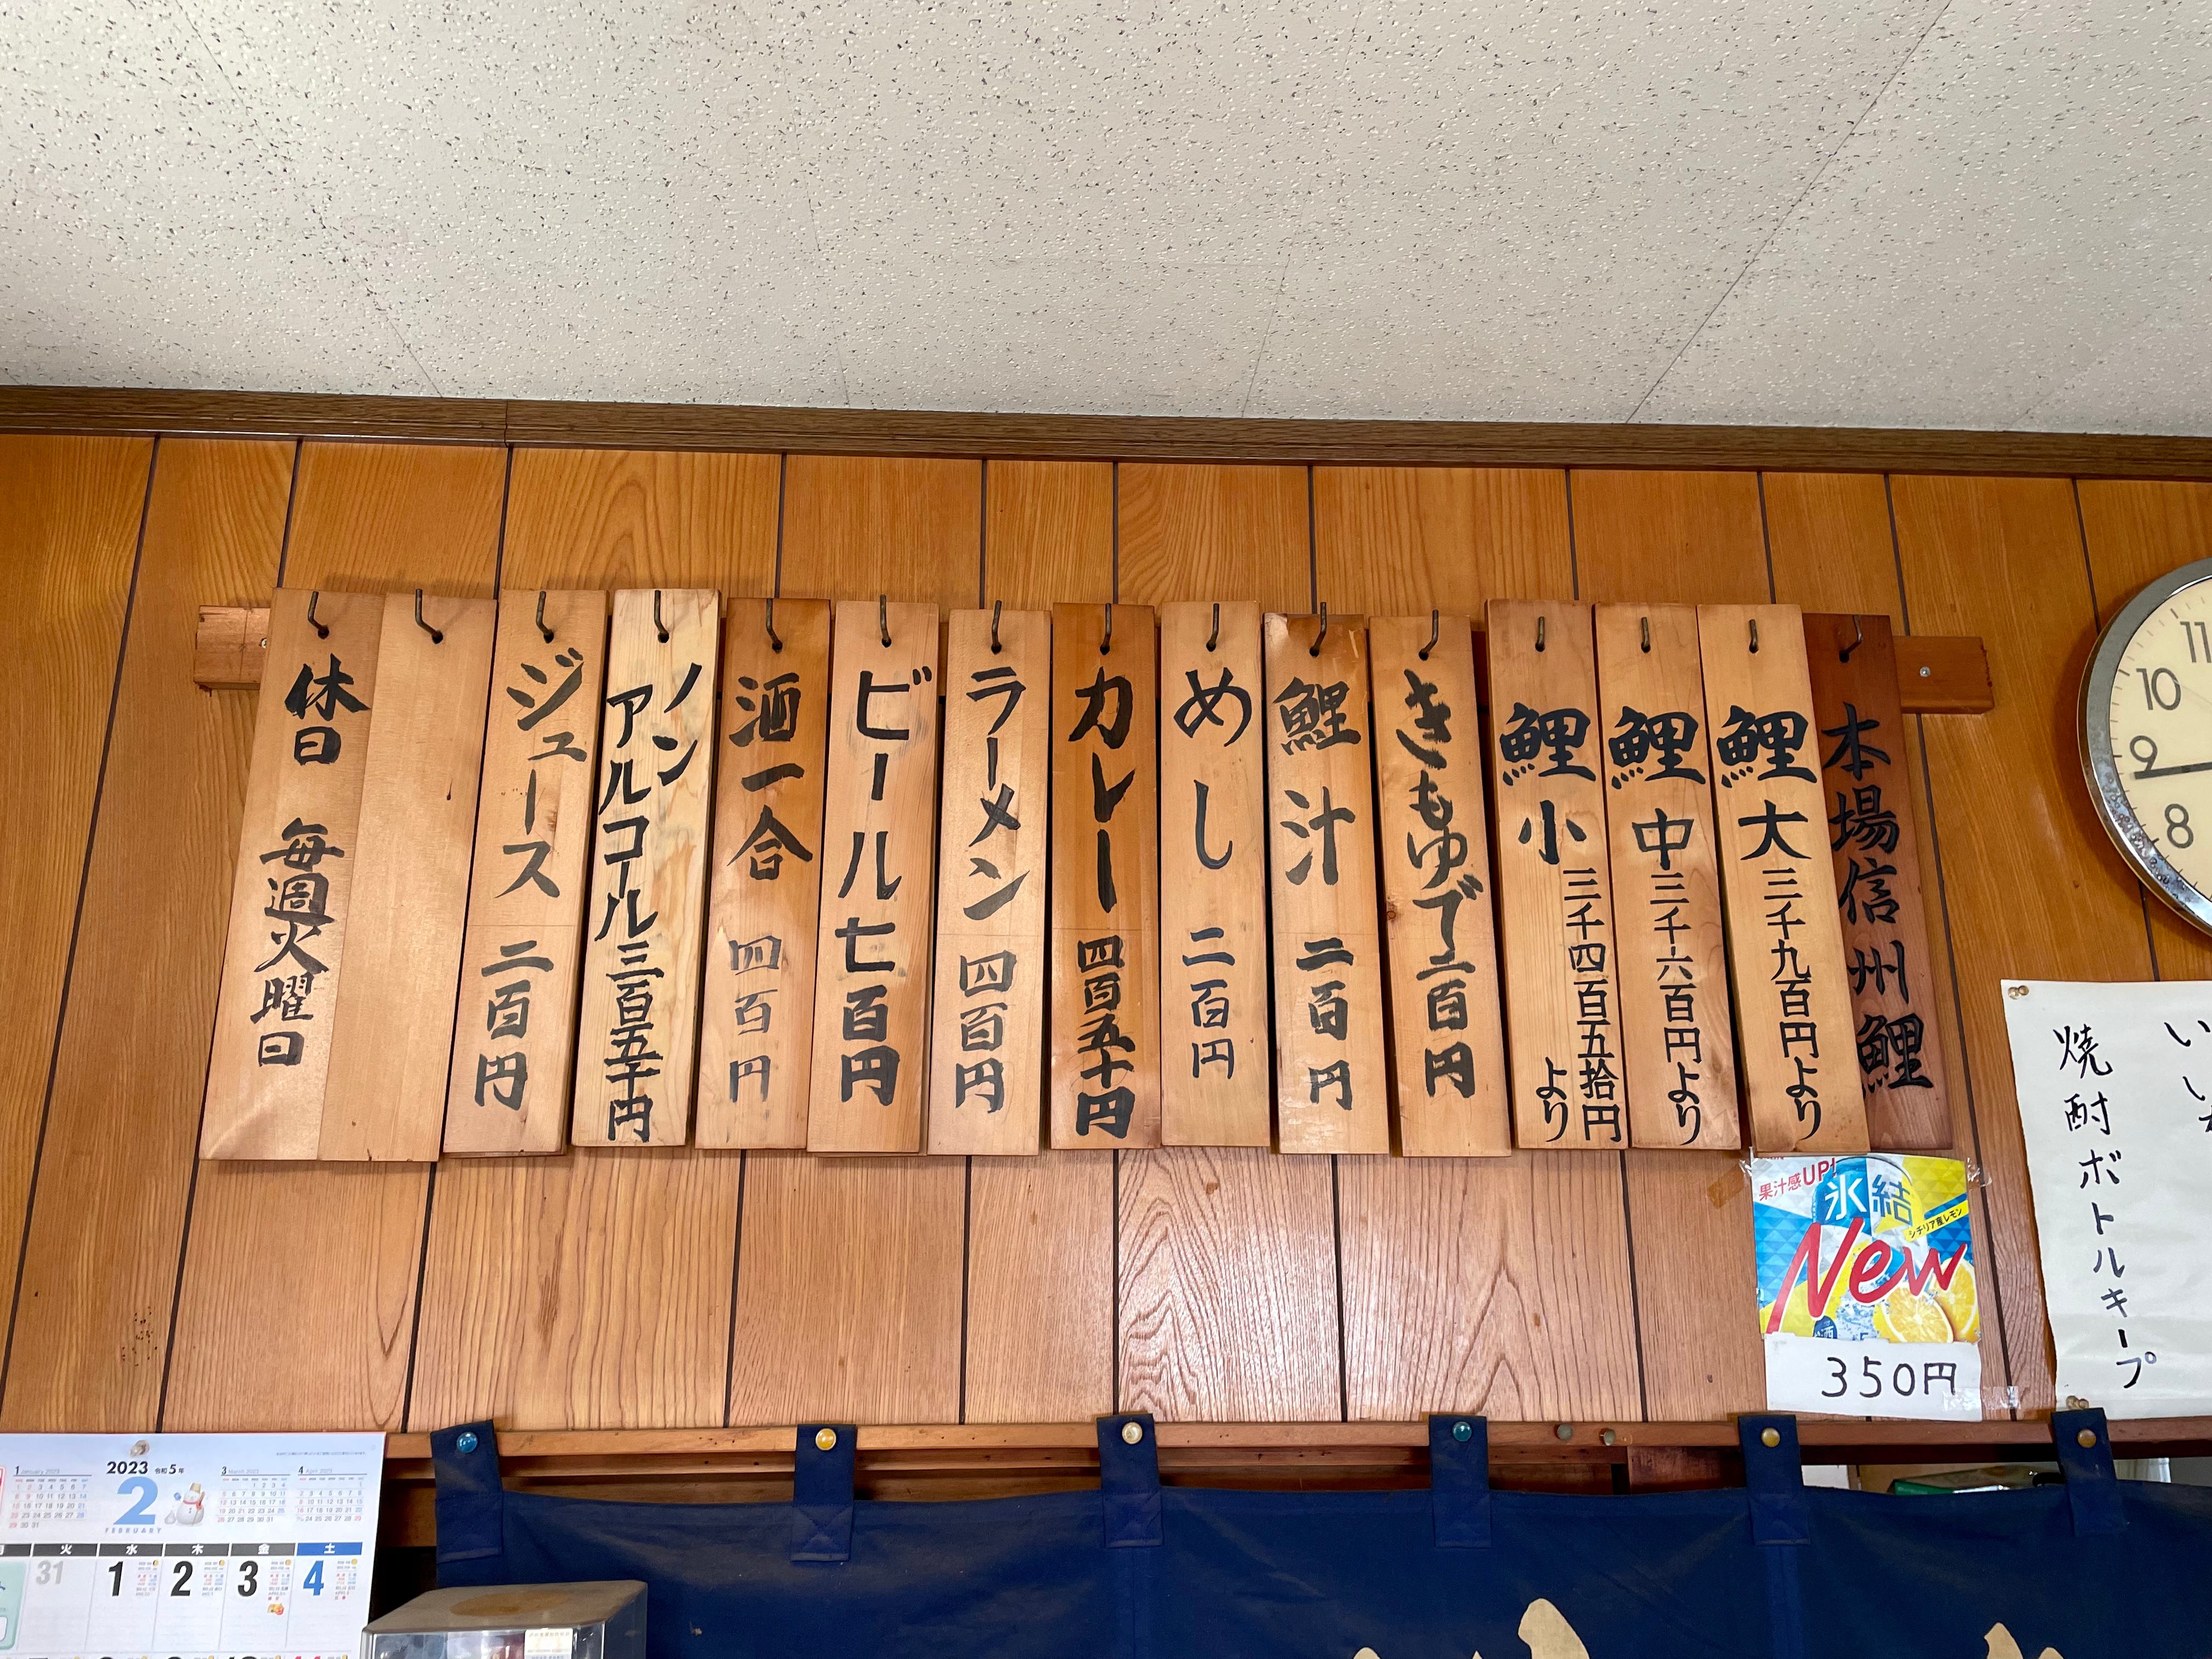 本場信州鯉
鯉大 三千九百円より
鯉中 三千六百円より
鯉小 三千四百五拾円
より
きもゆで 二百円
鯉汁 二百円
めし 二百円
カレー 四百五十円
ラーメン 四百円
ビール 七百円
酒一合 四百円
ノン
アルコール 三百五十円
ジュース 二百円
休日 毎週火曜日
11
10
9
8
焼酎ボトルキープ
果汁感UP!
氷結
シチリア産レモン
New
350円
2023 令和5年
2
FEBRUARY
1 January 2023
3 March 2023
4 April 2023
火 水 木 金 土
31 1 2 3 4